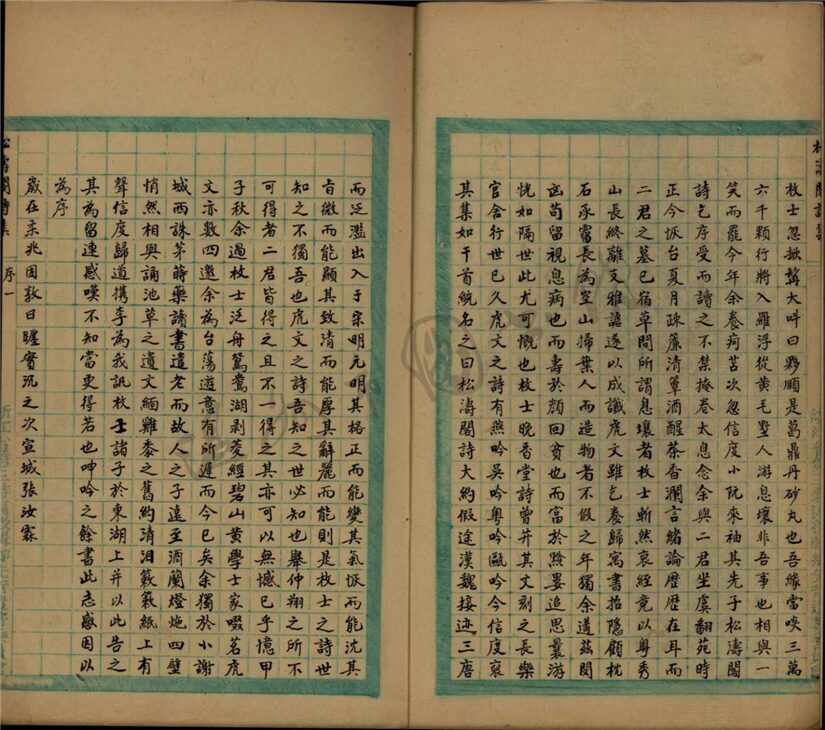 枚士忽掀髯大呌曰夥頤是葛鼎丹砂丸也吾緣當啖三萬
六千顆行將入羅浮從黄毛墅人游息壤非吾事也相與一
笑而罷今年余養疴苫次忽信度小阮來袖其先子松濤閣
詩乞序受而讀之不禁掩卷太息念余與二君坐虞翻苑時
正今恢台夏月踈簾清簟酒醒茶香瀾言緒論歷歷在耳而
二君之墓已宿草間所謂息壤者枚士斬然衰絰竟以粤秀
山長終離支雅謔遂以成讖虎文雖乞養歸寓書招隱顧枕
石承霤長為空山掃葉人而造物者不假之年獨余道茲閔
凶苟留視息病也而壽於顔回貧也而富於黔婁追思曩游
恍如隔世此尤可慨也枚士晚香堂詩曾并其文刻之長樂
官舍行世已久虎文之詩有燕吟吳吟粤吟甌吟今信度裒
其集如干首統名之曰松濤閣詩大約假途漢魏接迹三唐
而泛濫出入于宋明元明其格正而能變其氣恢而能沈其
㫖微而能顯其致清而能厚其辭麗而能則是枚士之詩世
知之不獨吾也虎文之詩吾知之世必知也舉仲翔之所不
可得者二君皆得之且不一得之其亦可以無憾已乎憶甲
子秋余過枚士泛舟鴛鴦湖剥菱經碧山黄學士家啜茗虎
文亦數四邀余為台蕩遊意有所遲而今已矣余獨於小謝
城西誅茅蒔藥讀書遣老而故人之子遠至酒闌燈炧四壁
悄然相與誦池草之遺文緬雞黍之舊約清泪簌簌紙上有
聲信度歸道携李為我訊枚士諸子於東湖上并以此告之
其為留連感嘆不知當更得若也呻吟之餘書此志感因以
為序
歲在柔兆困敦日躔實沉之次宣城張汝霖
松濤閣詩集
序一